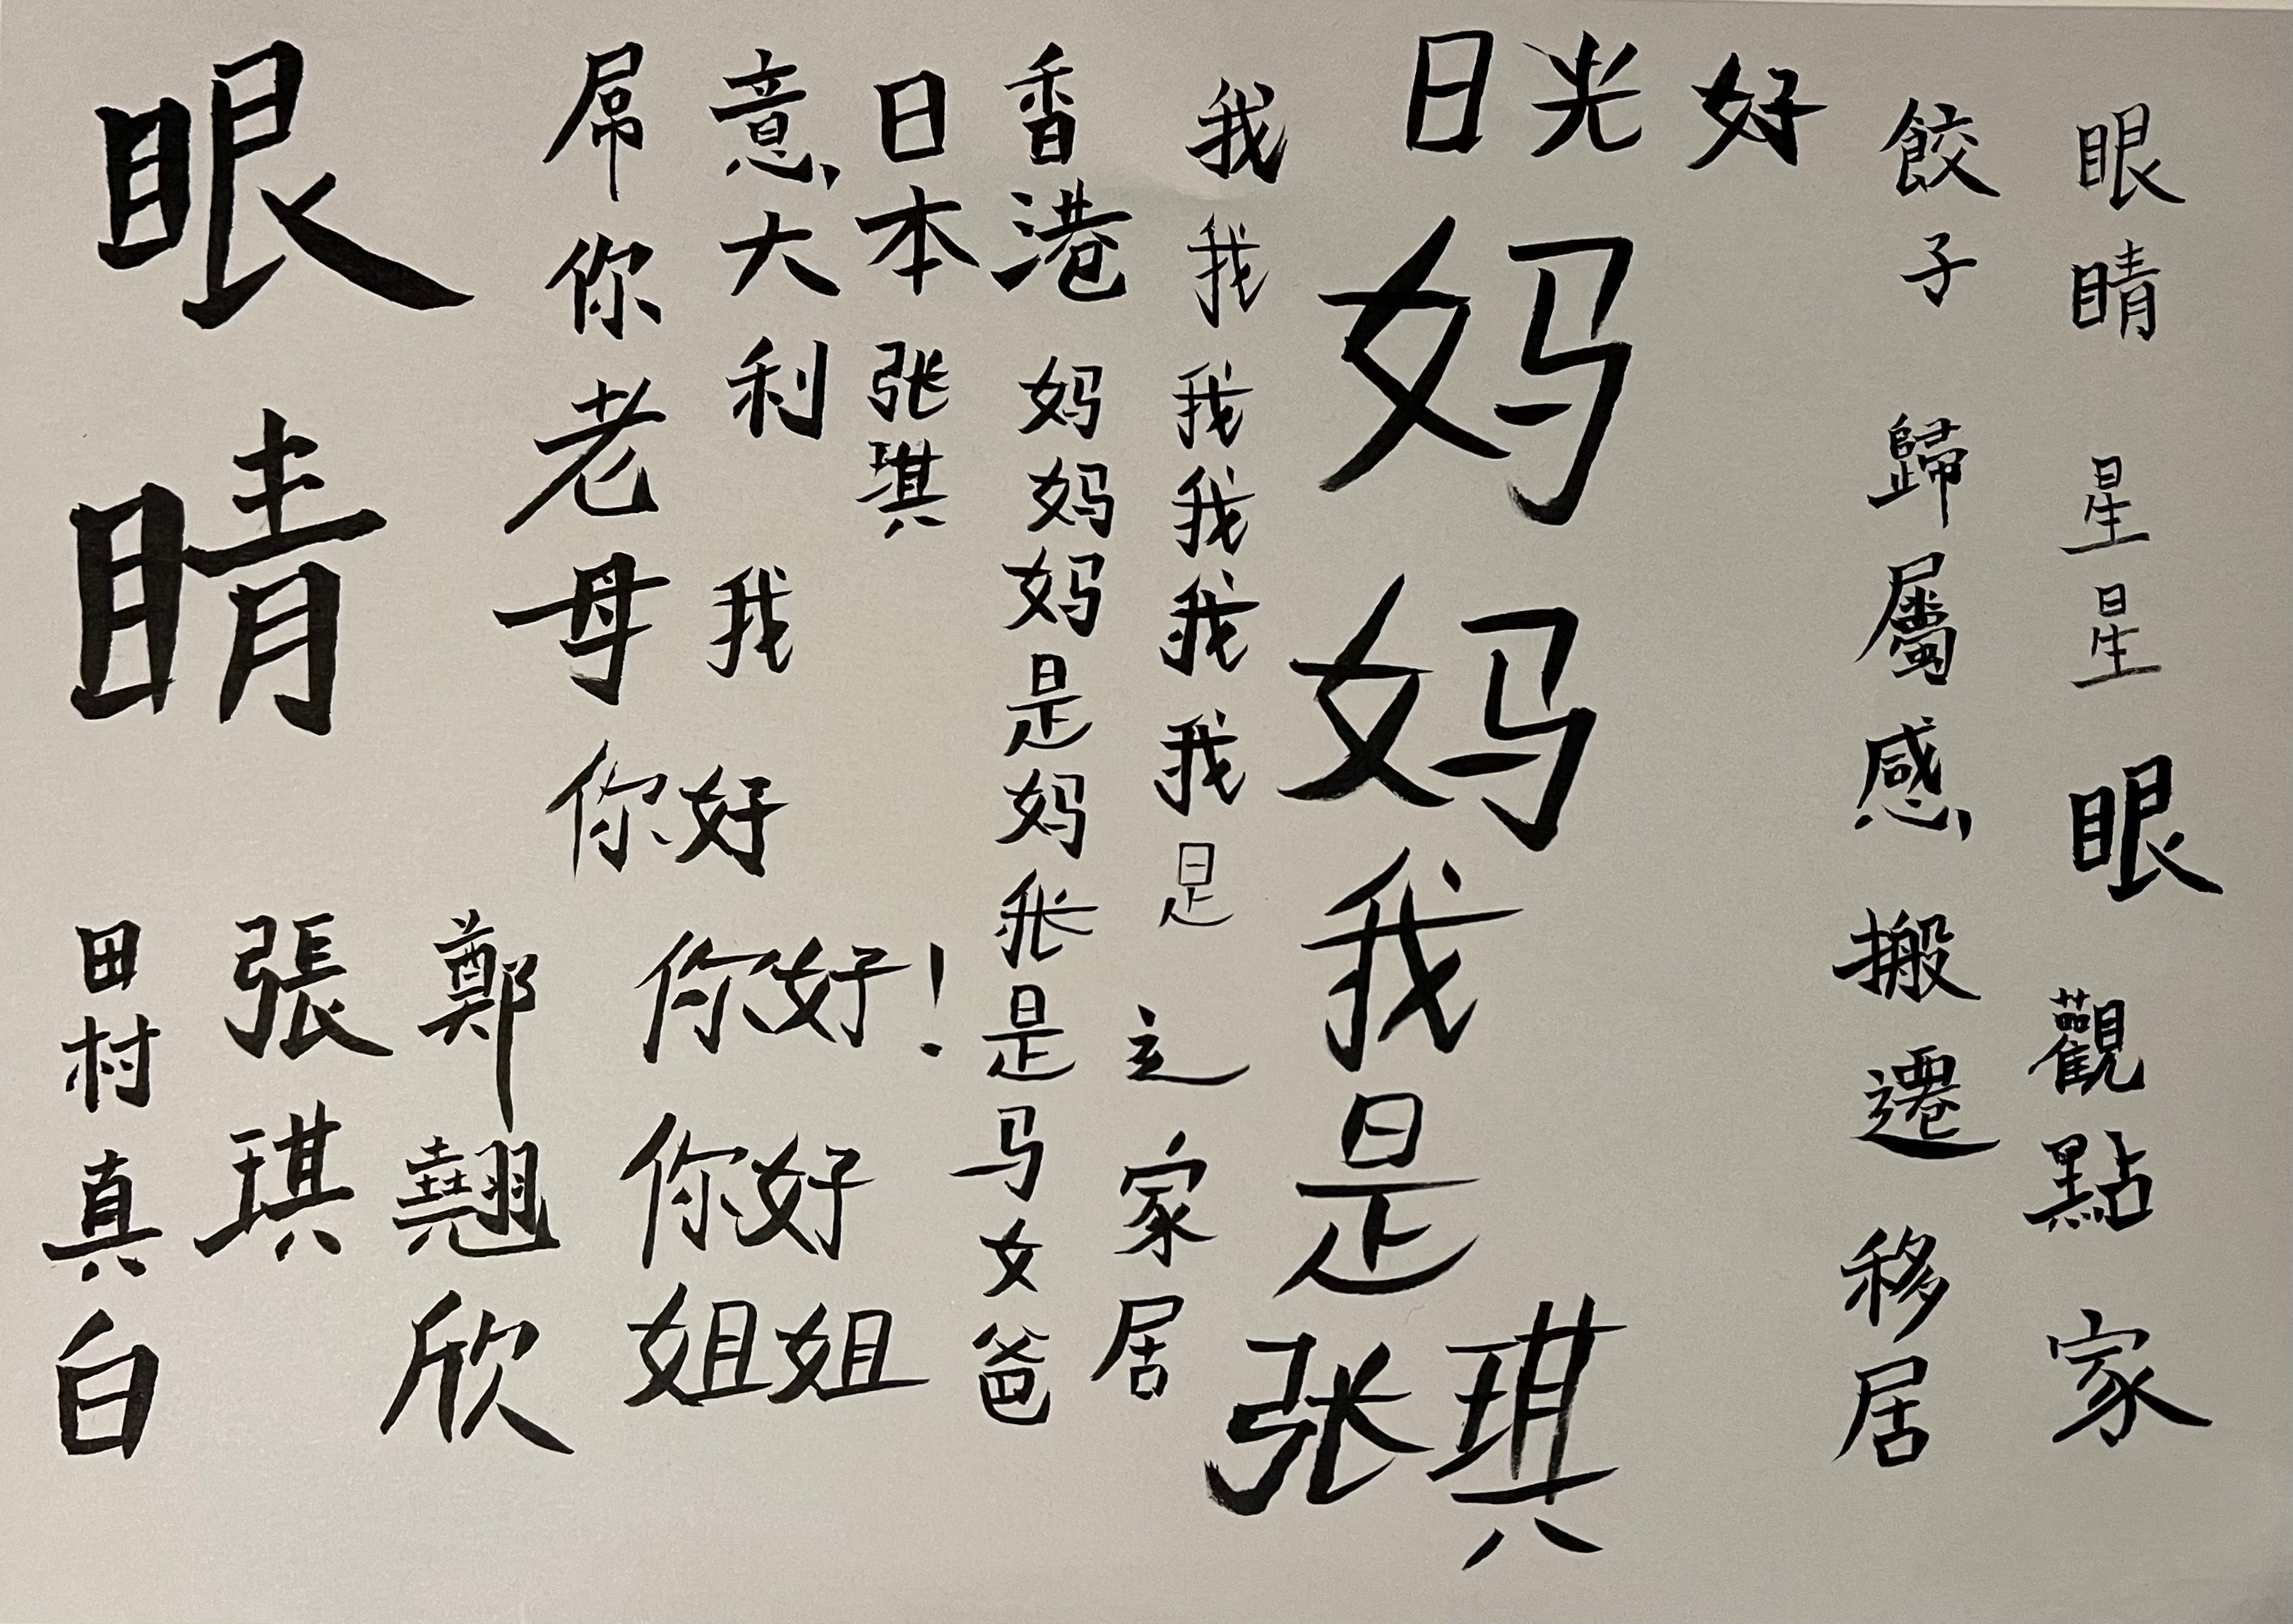 眼睛
星星
眼
觀點
家
餃子
歸屬感
搬遷
移居
好
日光
妈妈我是
张琪
我我我我我我是
家居
香港
妈妈妈是妈张是马女爸
日本
张琪
意大利
我
屌你老母
你好
你好！
你好
姐姐
鄭翹欣
張琪
田村真白
眼睛